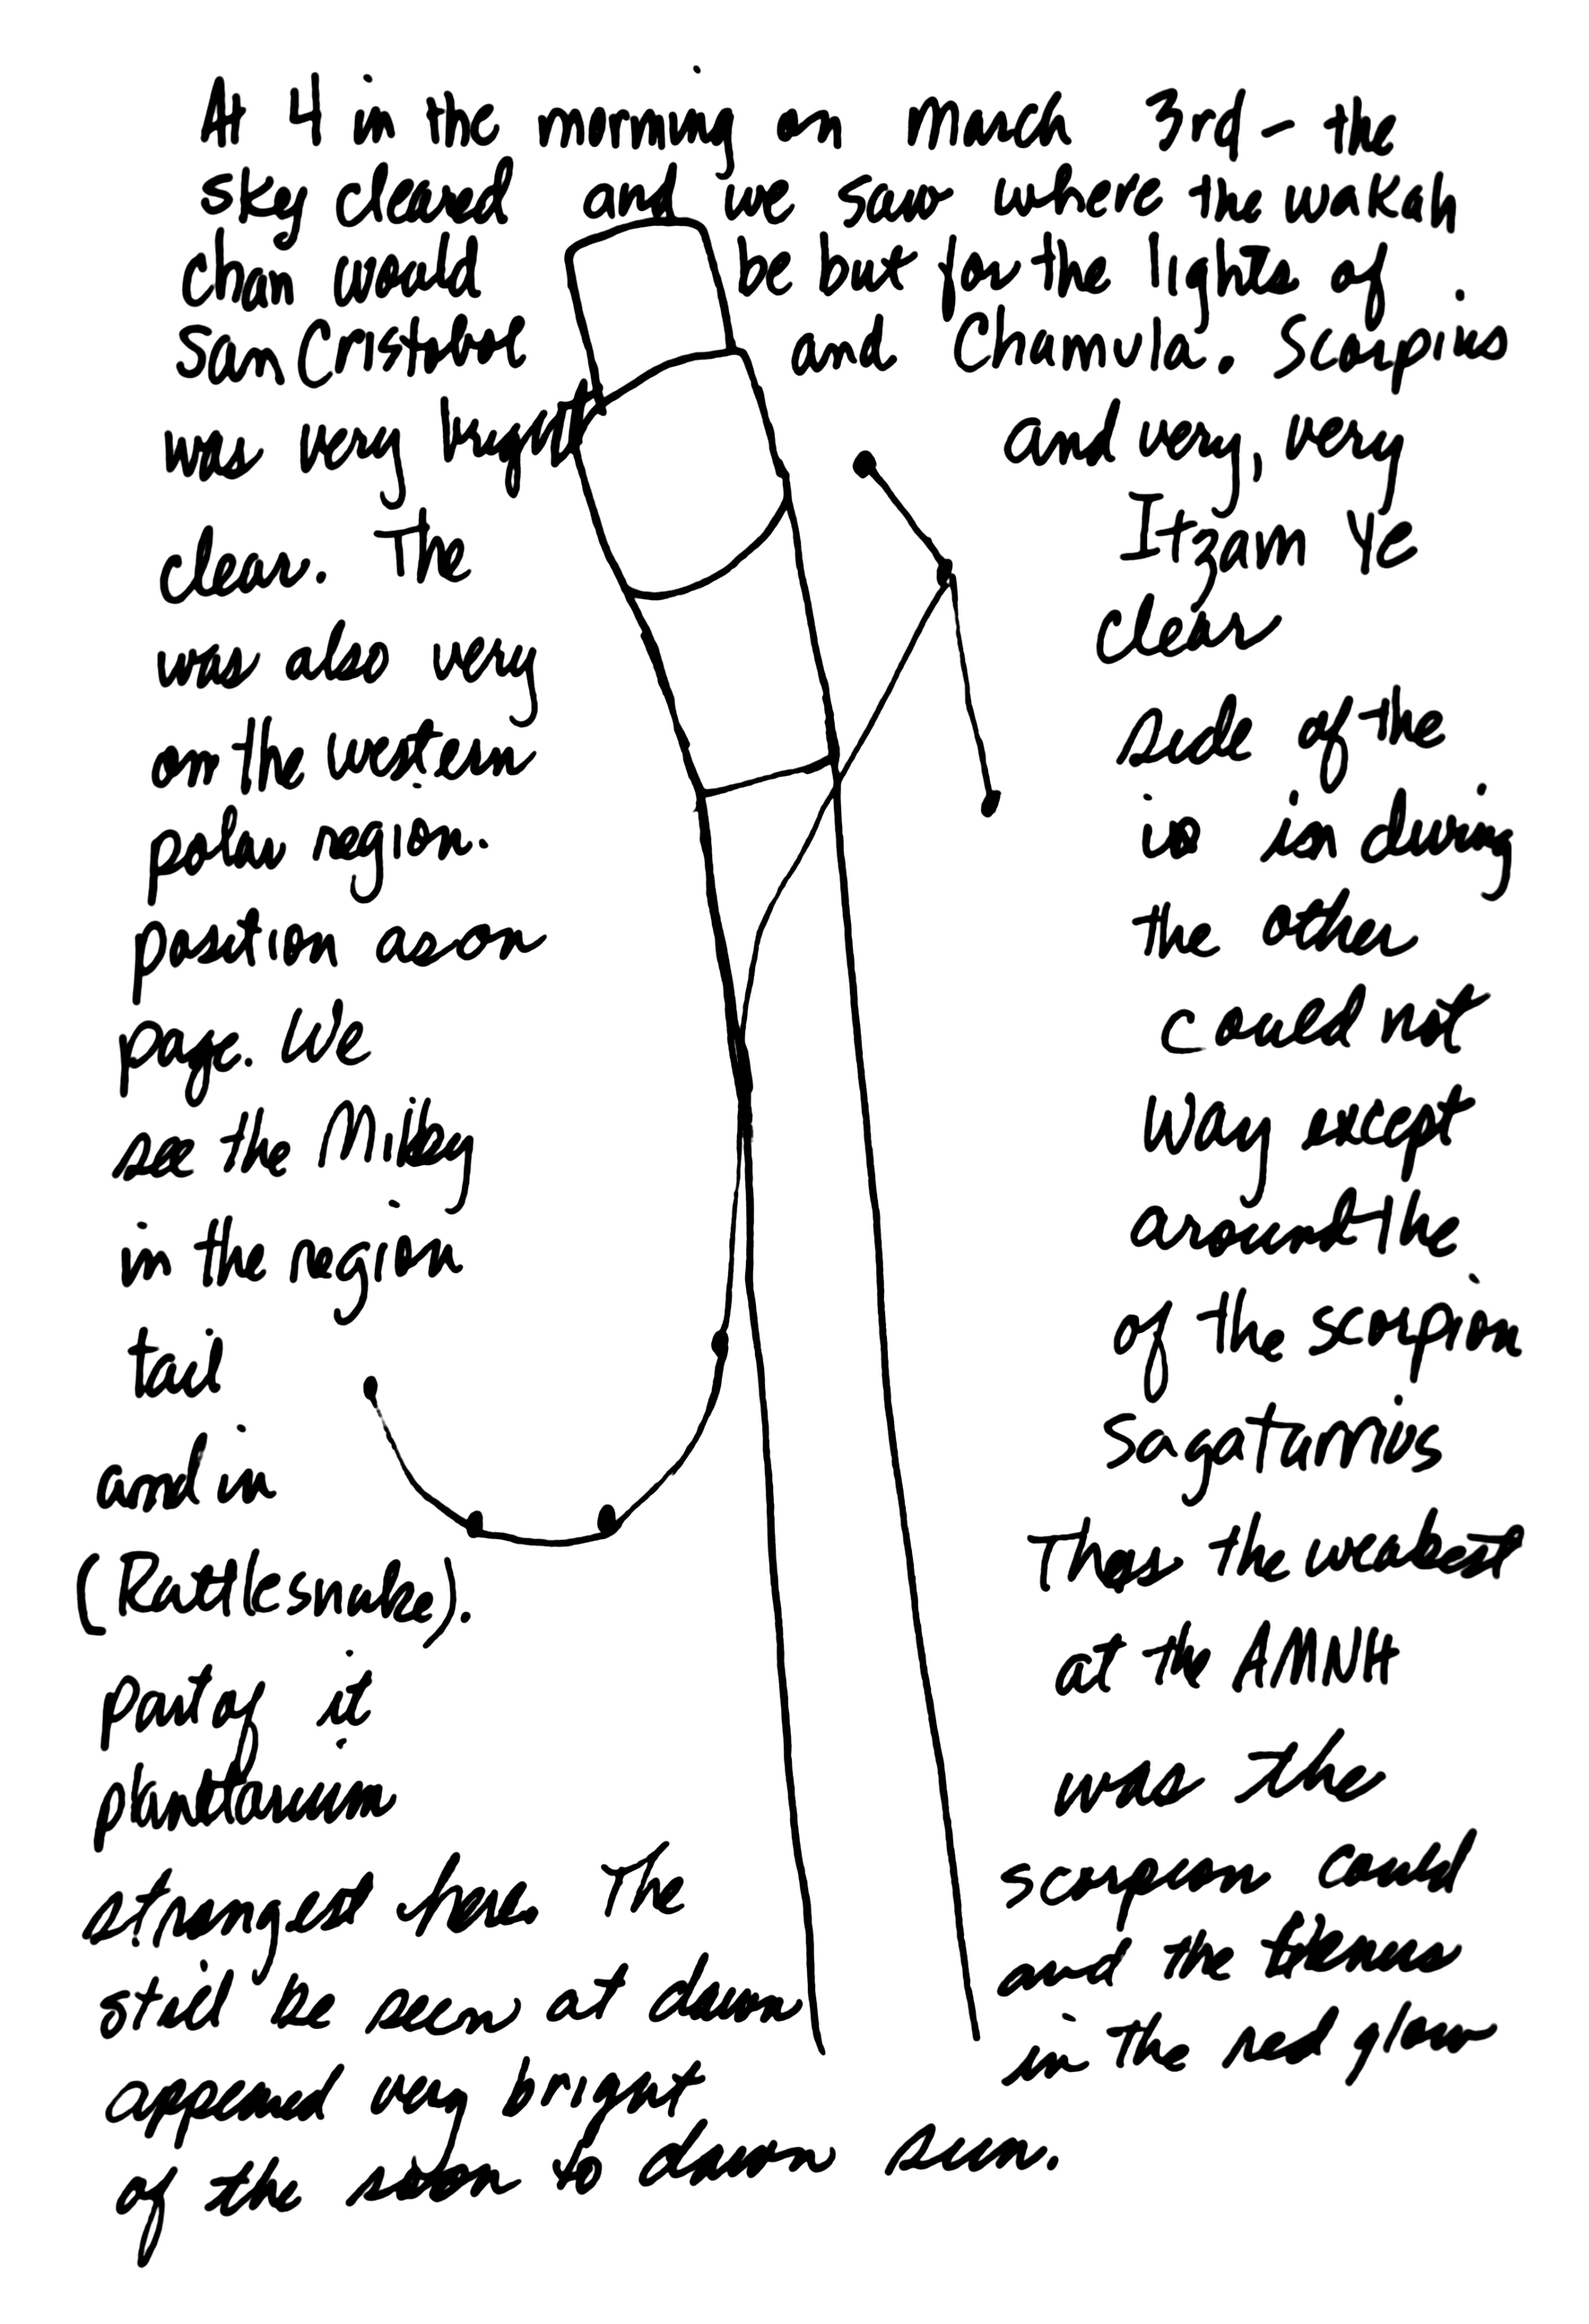 At 4 in the morning on March 3rd - the
sky cleared and we saw where the wakah
chan would be but for the lights of
San Cristobol and Chamula. Scorpius
was very bright and very, very
clear. The Itzam Ye
was also very clear
on the western side of the
polar region. is in during
position as on the other
page. We could not
see the Milkey Way except
in the region around the
tail of the scorpion
and in Sagaturrius
(Rattlesnake). Thas the weakest
part of it at the AMNH
planitarium was the
strongest here. The scorpion could
still be seen at dawn and the
appeared very bright in the red glow
of the soon to dawn sun.